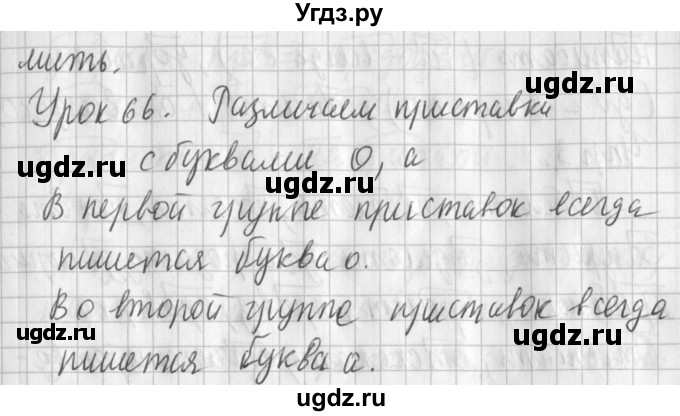 Угдз.ру
мить.
Урок 66. Различаем приставки
с буквами о, а
ugdz.ru ugdz.ru ugdz.ru
В первой группе приставок всегда
пишется буква о.
ugdz.ru ugdz.ru
Во второй группе приставок всегда
ugdz.ru ugdz.ru
пишется буква а.
ugdz.ru